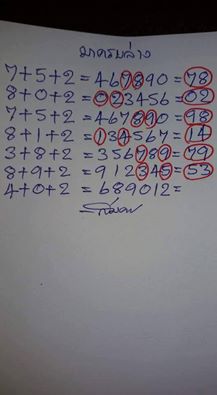 มาครบล่าง
7+5+2=467890=78
8+0+2=023456=02
7+5+2=467890=98
8+1+2=134567=14
3+8+2=356789=79
8+9+2=912345=53
4+0+2=689012=